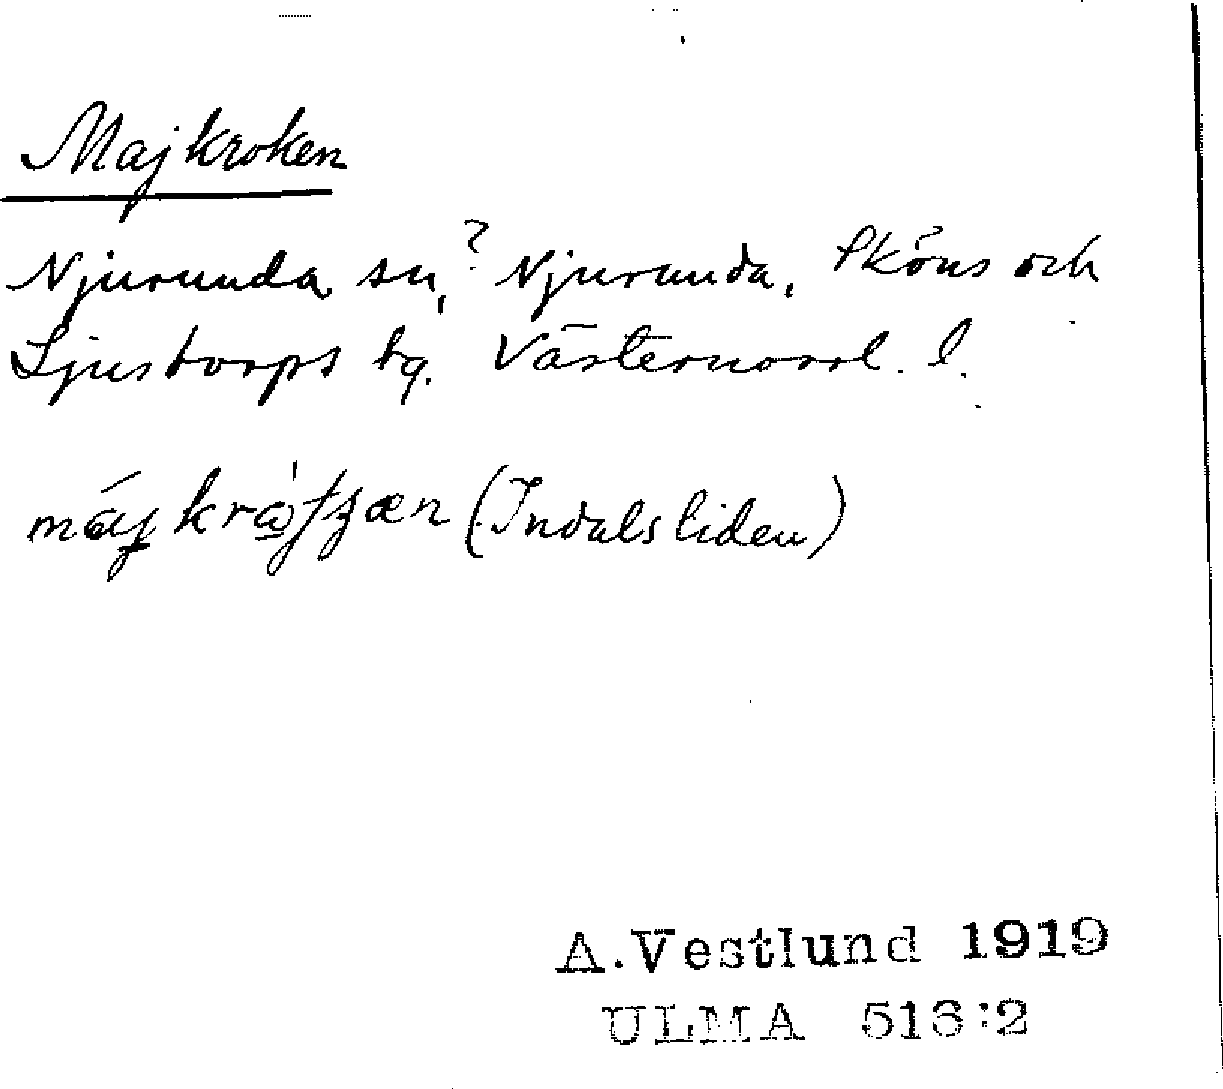 Majkroken
Njurunda sn,? Njurunda, Sköns och
Ljustorps tg. Västernorrl. l.
(Indalsliden)
A. Vestlund 1919
ULMA 516:2